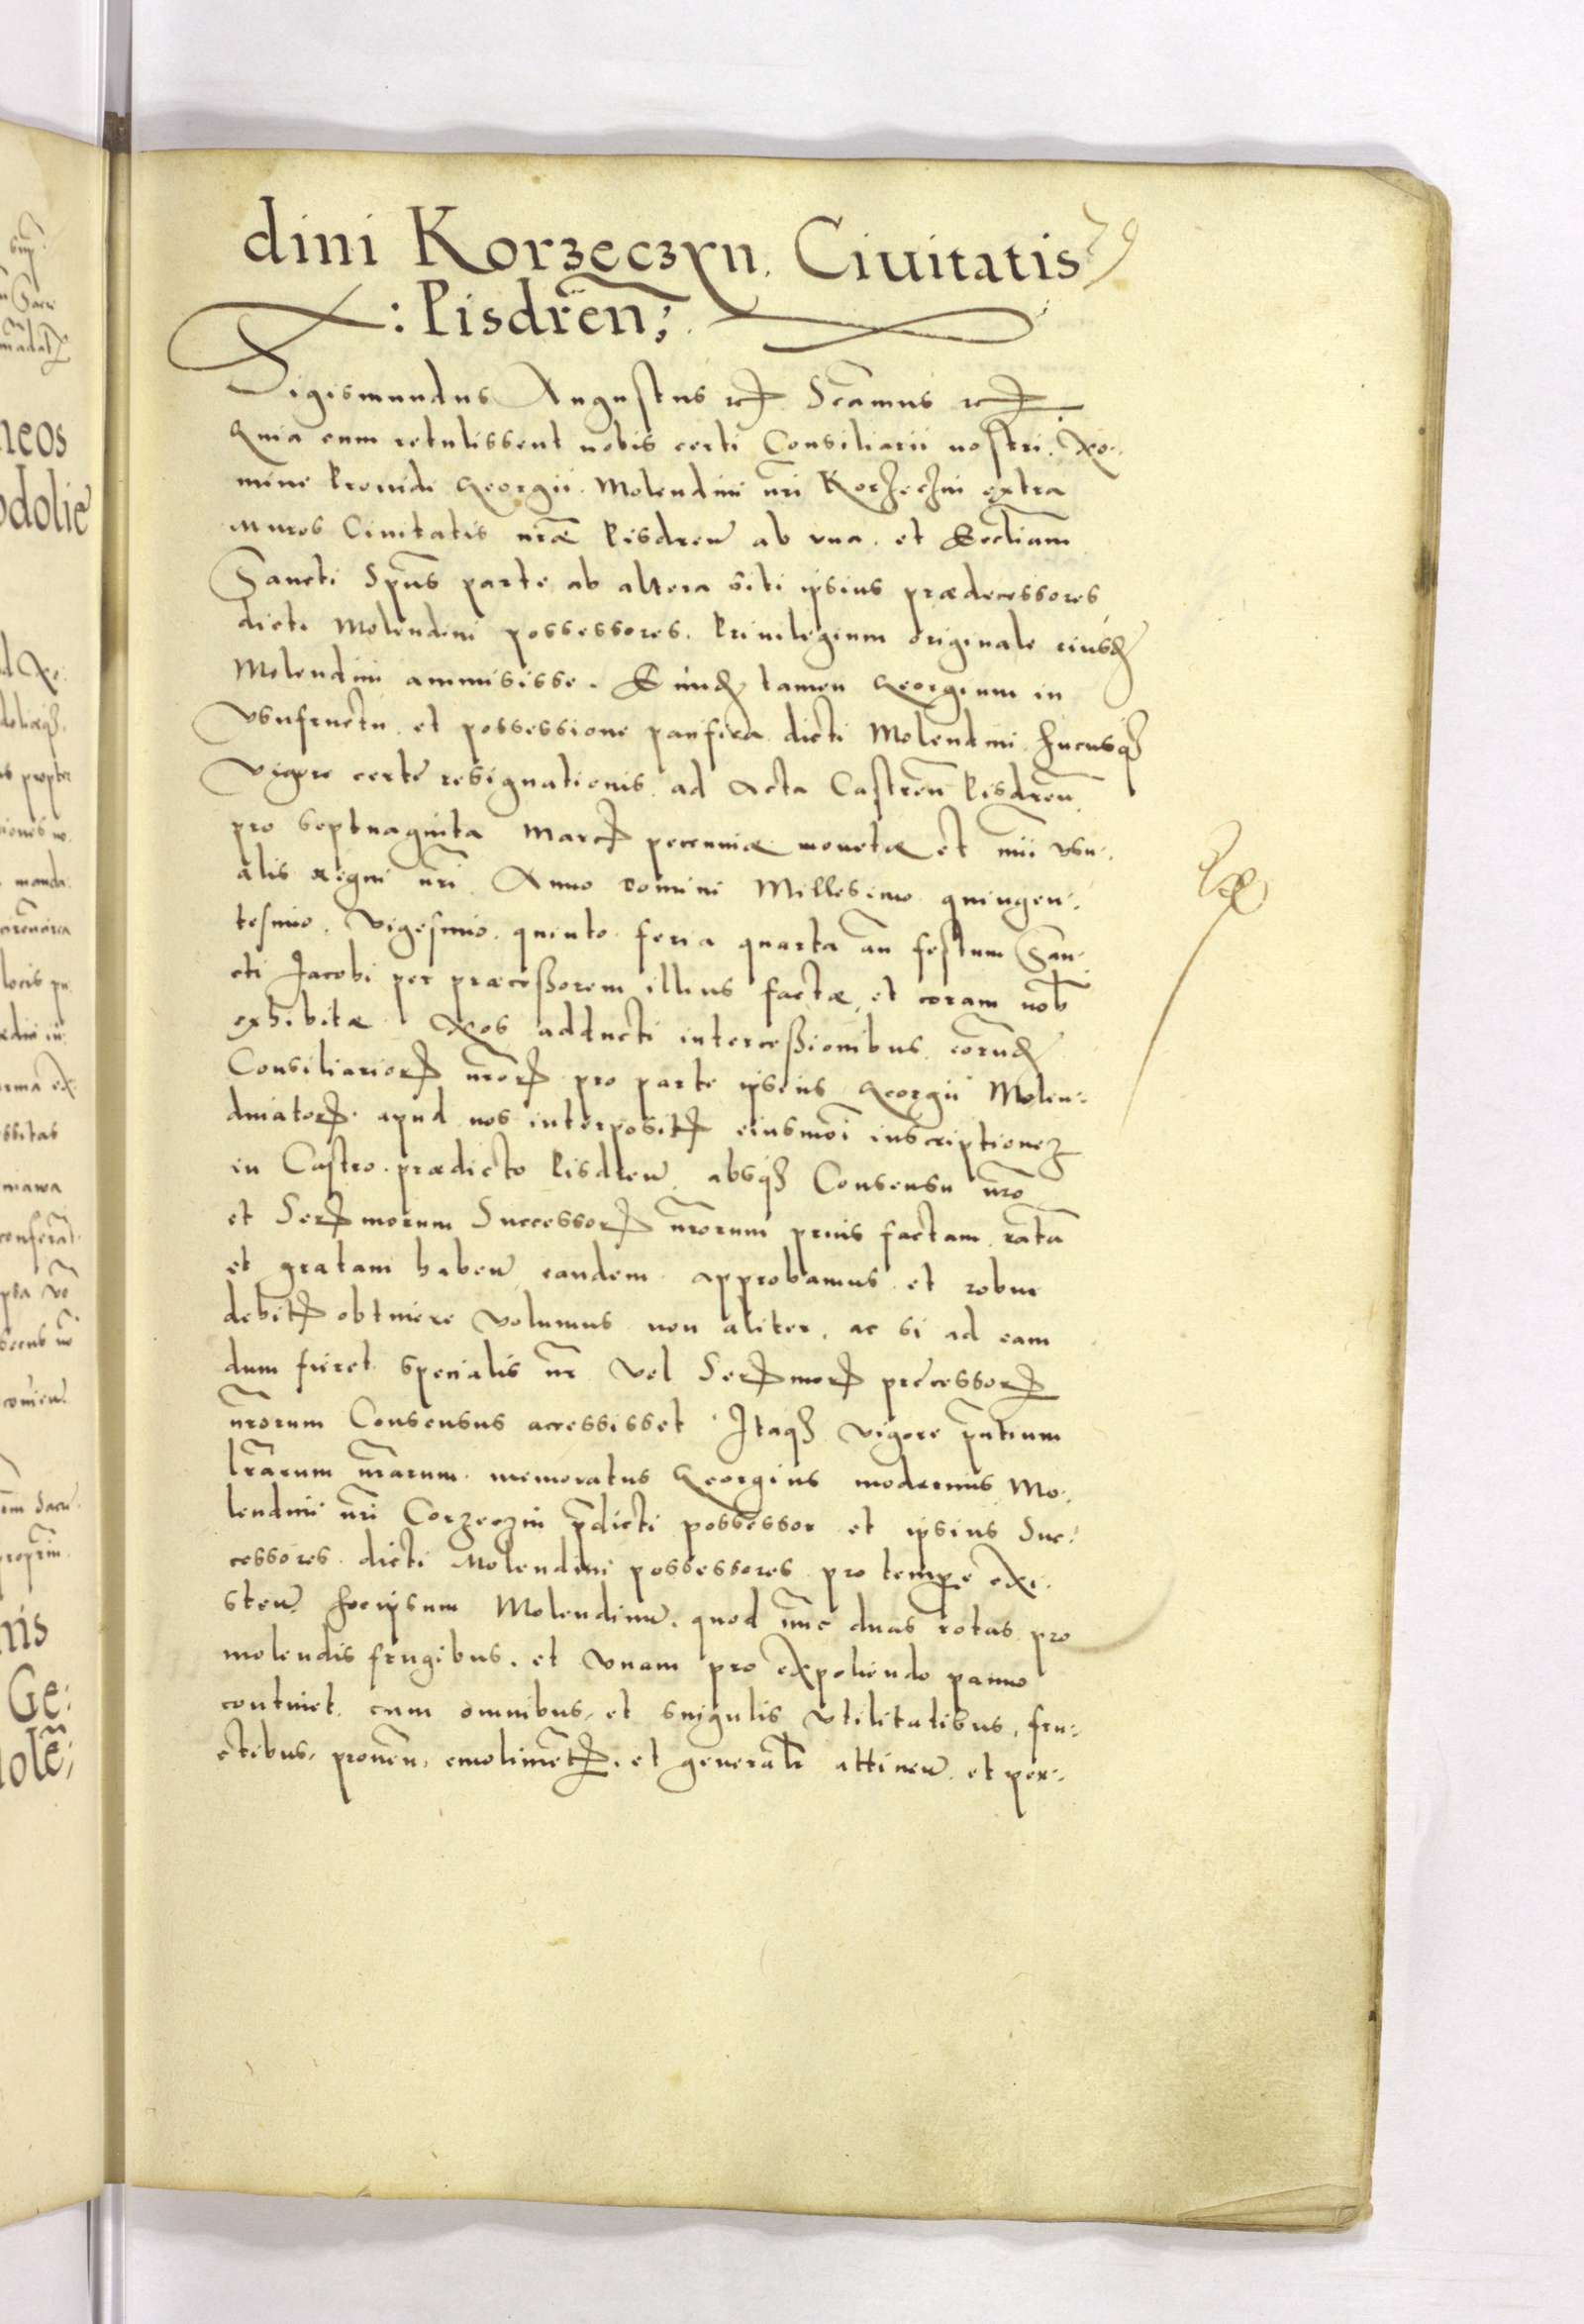 dini Korzeczyn. Ciuitatis 79
: Pisdreñ;
Sigismundus Augustus etc. Scamus etc.
Quia cum retulissent nobis certi Consiliarii nostri. No:
mine Prouidi Georgii. Molendini nři Korzeczni extra
muros Ciuitatis nræ Pisdreñ ab vna. et Eccliam
Sancti Spus parte ab altera siti ipsius prædecessores
dicti Molendini possessores. Priuilegium originale eiusd
Molendini ammisisse. Eund tamen Georgium in
Vsufructu et possessione pacifica dicti Molendini hucusq
Vigore certe resignationis ad Acta Castreñ Pisdreñ
pro septuaginta Marc pecuniæ monetæ et nũi vsu:
alis Regni nři Anno Domini Millesimo quingen:
tesimo. Vigesimo. quinto feria quarta añ festum San:
cti Jacobi per præceßorem illius factæ, et coram nob
exhibitæ. Nos adducti interceßionibus eorund
Consiliarior nror pro parte ipsius Georgii Molen:
dinator. apud nos interposit eiusmoi inscriptionez
in Castro prædicto Pisdreñ absq Consensu nro
et Sermorum Successor nrorum prius factam rata
et gratam habeñ eandem approbamus et robur
debit obtinere Volumus non aliter, ac si ad eam
dum fieret specialis nr Vel Sermor precessor
nrorum Consensus accessisset Itaq vigore pntium
lrarum nrarum memoratus Georgius modernus Mo:
lendini nři Corzeczni pdicti possessor et ipsius Suc:
cessores dicti Molendini possessores pro tempe exi:
steñ hocipsum Molendinũ. quod nunc duas rotas pro
molendis frugibus. et Vnam pro expoliendo panno
continet cum omnibus, et singulis Vtilitatibus, fru:
ctibus, proueñ, emolimet. et generalr attineñ et per: